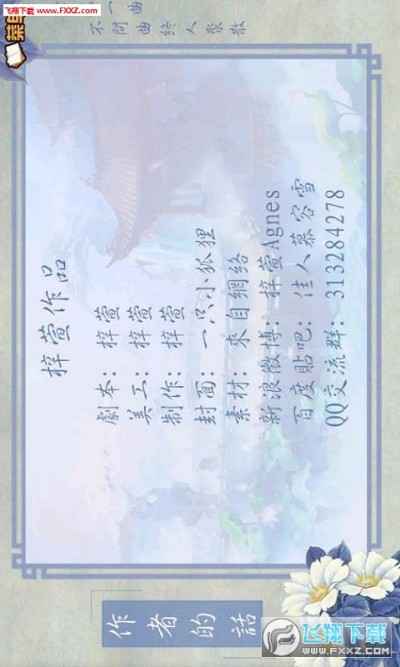 飞翔下载
www.FXXZ.com
菜单
一曲
不問曲終人聚散
梓萱作品
劇本：梓萱
美工：梓萱
制作：梓萱
封面：一只小狐狸
素材：來自網絡
新浪微博：梓萱Agnes
百度貼吧：佳人慕容雪
QQ交流群：313284278
作者的話
飞翔下载
WWW.FXXZ.COM